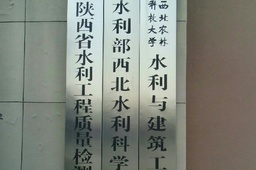 陕西省水利工程质量检测
水利部西北水利科学
西北农林
科技大学
水利与建筑工